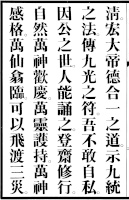 清宏大帝德合一之道示九統
之法傳九光之符吾不敢自私
因公之世人能誦之登齋修行
自然萬神歡慶萬靈護持萬神
感格萬仙翕臨可以飛渡三災